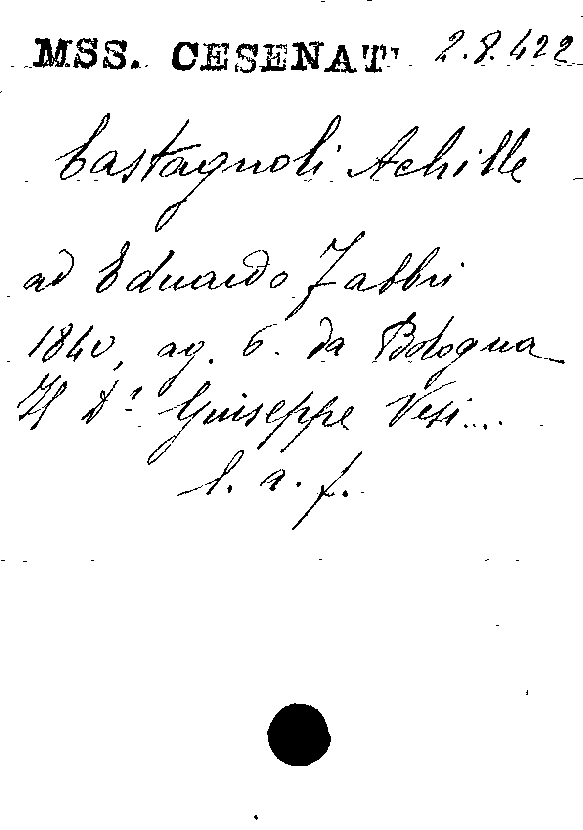 MSS. CESENATI 2.8.422
Castagnoli Achille
ad Eduardo Fabbri
1840, ag. 6. da Bologna
Il D.r Giuseppe Vesi...
l. a. f.